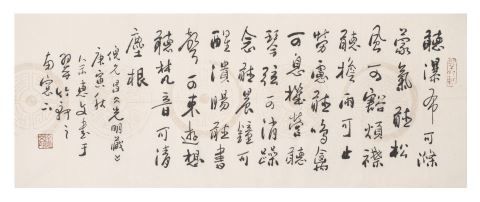 聽瀑布可滌
蒙氣聽松
風可豁煩襟
聽檐雨可止
勞慮聽鳴禽
可息機營聽
琴弦可消躁
念聽晨鐘可
醒潰腸聽書
聲可束遊想
聽梵音可清
塵根
倪允昌光明藏
庚寅秋
書于
之
南窗下